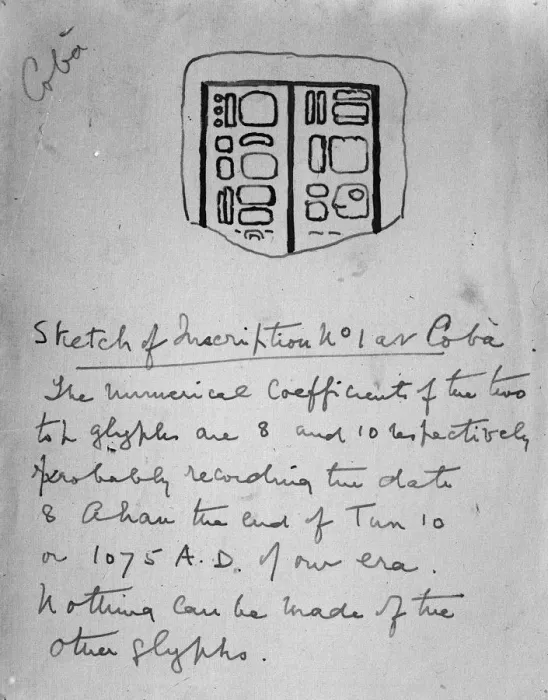 Cobà
Sketch of Inscription No 1 at Cobà.
The numerical coefficients of the two
top glyphs are 8 and 10 respectively
probably recording the date
8 Ahau the end of Tun 10
or 1075 A.D. of our era.
Nothing can be made of the
other glyphs.